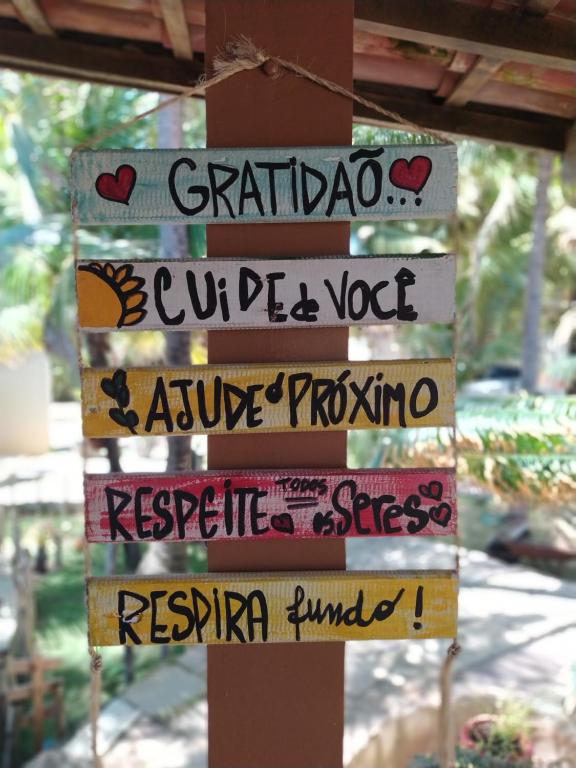 GRATIDAÕ...
CUIDE de VOCÊ
AJUDE o PRÓXIMO
RESPEITE TODOS os Seres
RESPIRA fundo!